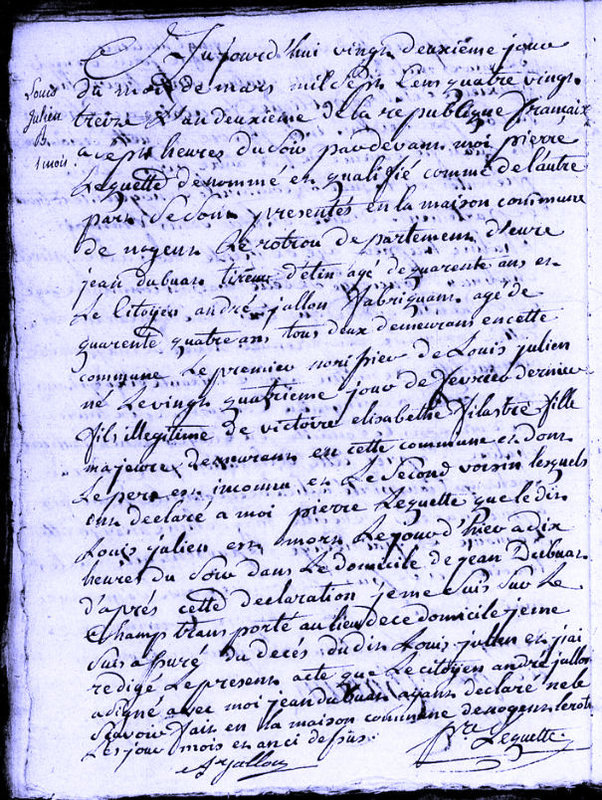 Aujourd'hui vingt deuxième jour
Louis
Julien
B.
1 mois
du mois de mars mil Sept Cens quatre vingt
treize L'an deuxieme de la république francaise
a Sept heures du Soir pardevant moi pierre
Lequette denommé et qualifié comme de l'autre
part Se Sont presentés en la maison commune
de nogent Le rotrou departement d'eure
jean dubuat tireur d'etin agé de quarente ans et
Le Citoyen andré jallon fabriquant agé de
quarente quatre ans tous deux demeurans en cette
commune Le premier noricier de Louis julien
né Le vingt quatrième jour de fevrier dernier
fils illegitime de victoire elisabethe filastre fille
majeure demeurent en cette commune et dont
Le pere est inconnu et Le Second voisin lesquels
ont declaré a moi pierre Lequette que ledit
Louis julien est mort Le jour d'hier a dix
heures du Soir dans Le domicile de jean Dubuat
d'aprés cette declaration je me Suis Sur Le
Champ transporté au lieu de ce domicile je me
Suis assuré du deces dudit Louis julien et j'ai
redigé Le present acte que Le citoyen andré jallon
a signé avec moi jean dubuat ayant declaré ne le
Savoir fait en la maison commune de nogent le rotrou
Les jour mois et an ci dessus.
Ae jallon
pre Lequette